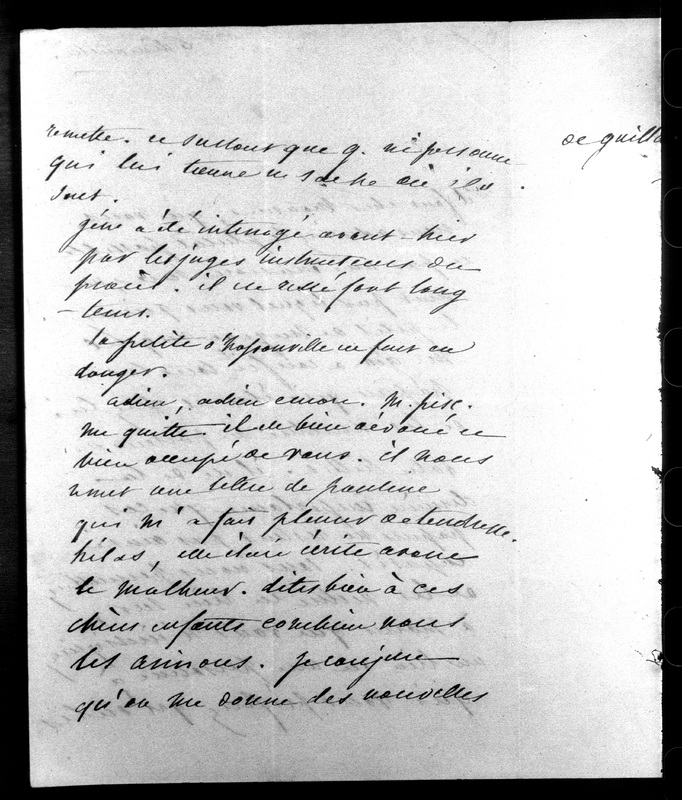 remettre. ce surtout que q. ni personne
qui lui tienne ne sache où ils
sont.
gène a été interrogé avant-hier
par les juges instructeurs du
procès. il ne resté fort long
-tems.
la petite d'haussonville en
danger.
adieu, adieu encore. M.
me quitte. il est bien dévoué et
bien occupé de vous. il nous
remet une lettre de pauline
qui m'a fait pleurer de tendresse.
hélas, elle étoit écrite avant
le malheur. dites bien à ces
chères enfants combien nous
les aimons. je conjure
qu'on me donne des nouvelles
de